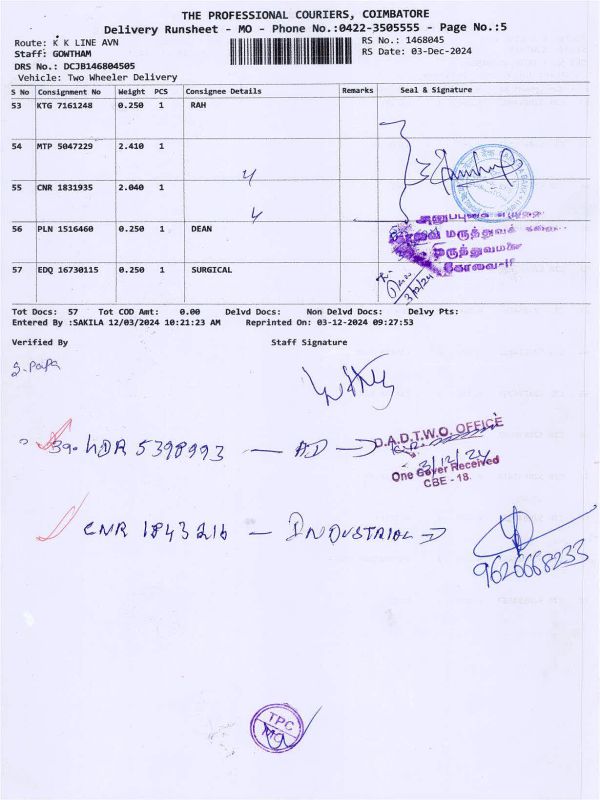 THE PROFESSIONAL COURIERS, COIMBATORE
Delivery Runsheet - MO - Phone No.:0422-3505555 - Page No.:5
Route: K K LINE AVN
RS No.: 1468045
Staff: GOWTHAM
RS Date: 03-Dec-2024
DRS No.: DCJB146804505
Vehicle: Two Wheeler Delivery
S No Consignment No Weight PCS Consignee Details Remarks Seal & Signature
53 KTG 7161248 0.250 1 RAH
54 MTP 5047229 2.410 1
55 CNR 1831935 2.040 1
56 PLN 1516460 0.250 1 DEAN
மருத்துவக்
57 EDQ 16730115 0.250 1 SURGICAL
3/12/24
Tot Docs: 57 Tot COD Amt: 0.00 Delvd Docs: Non Delvd Docs: Delvy Pts:
Entered By :SAKILA 12/03/2024 10:21:23 AM Reprinted On: 03-12-2024 09:27:53
Verified By Staff Signature
D.A.D.T.W.O. OFFICE
5398993 — AD
3/12/24
One Cover Received
CBE - 18.
CNR 1843216 — INDUSTRIAL
9626668233
TPC
MO